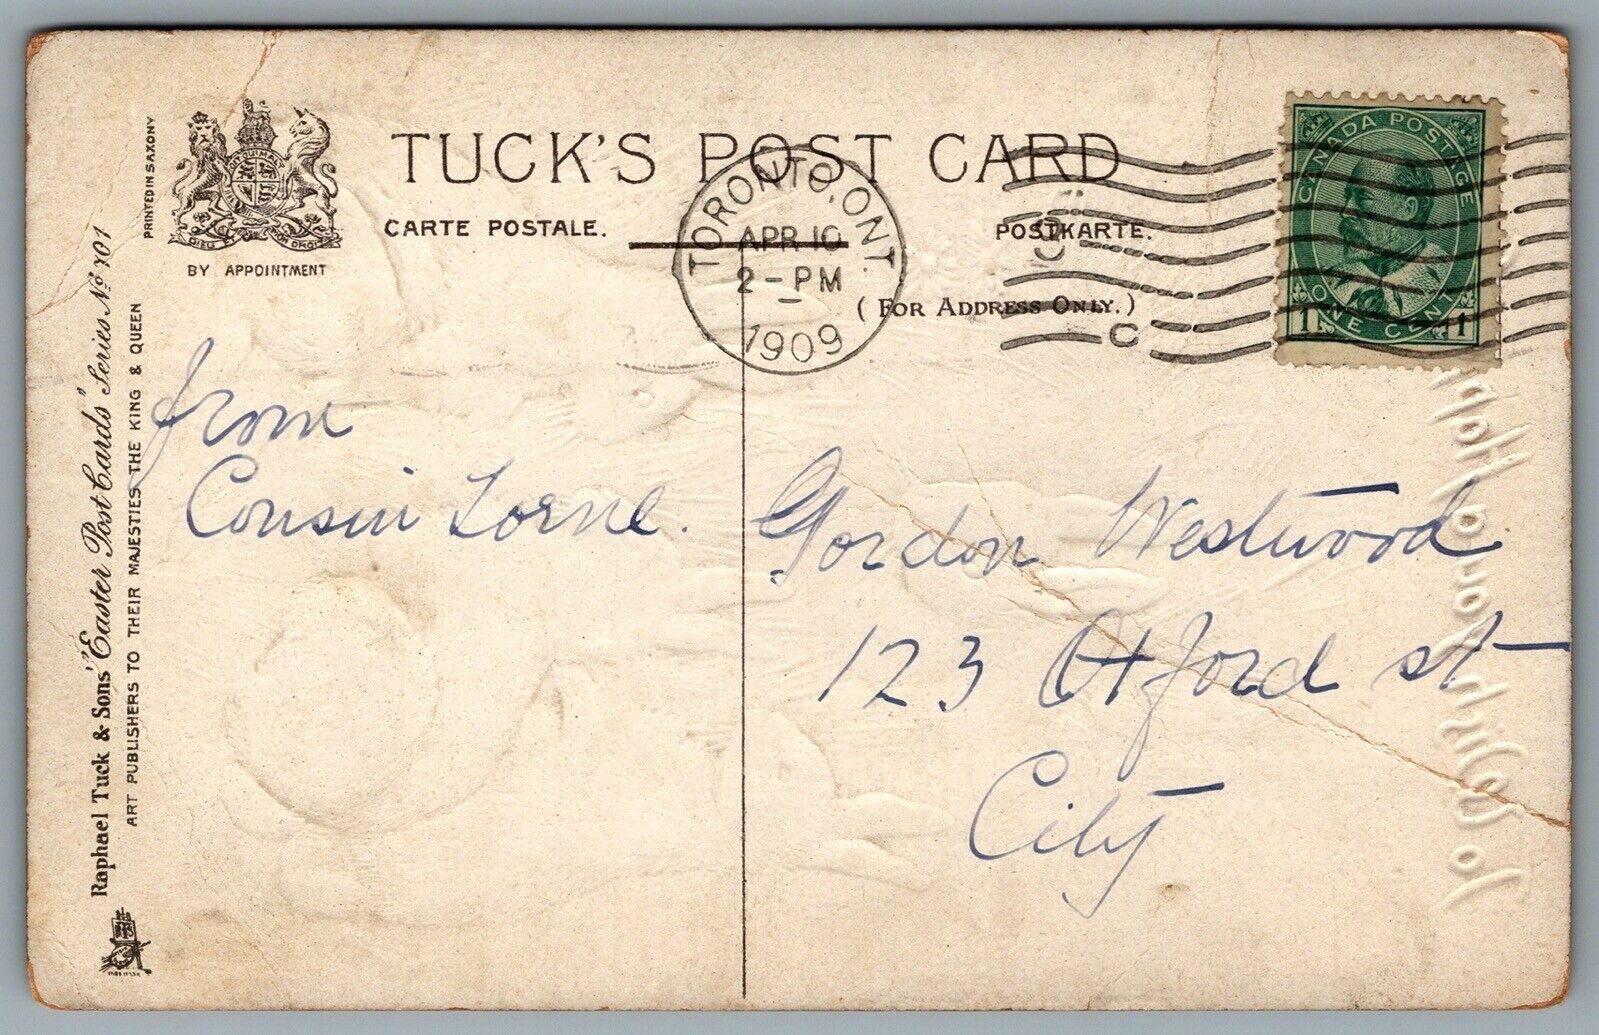 TUCK'S POST CARD
CARTE POSTALE.
POSTKARTE.
(FOR ADDRESS ONLY.)
BY APPOINTMENT
PRINTED IN SAXONY
Raphael Tuck & Sons' "Easter Post Cards" Series No 101
ART PUBLISHERS TO THEIR MAJESTIES THE KING & QUEEN
TORONTO, ONT.
APR 10
2 - PM
1909
C
CANADA POSTAGE
1 ONE CENT 1
from
Cousin Lorne.
Gordon Westwood
123 Oxford st
City
To Wish you a Happy